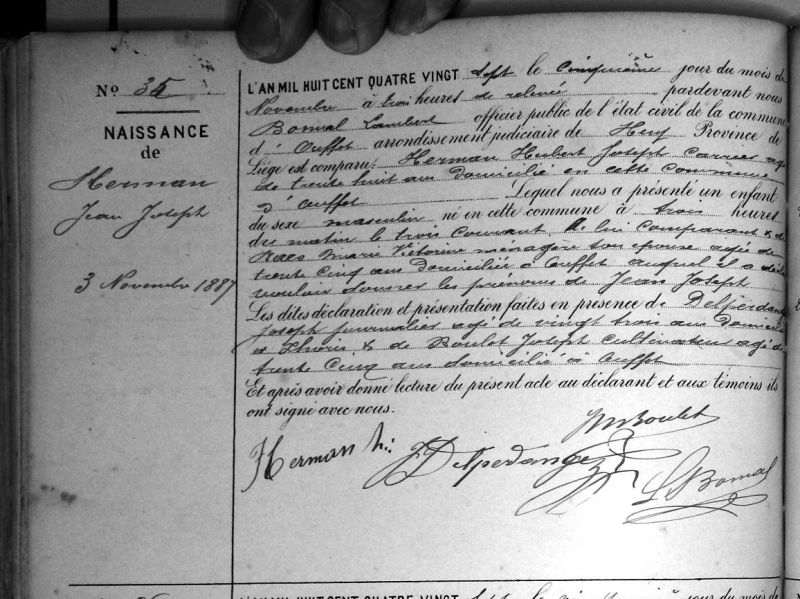 No 35
NAISSANCE
de
Herman
Jean Joseph
3 Novembre 1887
L'AN MIL HUIT CENT QUATRE VINGT sept le cinquième jour du mois de
Novembre à trois heures de relevée pardevant nous
Bomal Lambert officier public de l'état civil de la commune
d'Ouffet arrondissement judiciaire de Huy Province de
Liége est comparu: Herman Hubert Joseph carrier agé
de trente huit ans domicilié en cette commune
d'Ouffet Lequel nous a présenté un enfant
du sexe masculin né en cette commune à trois heures
du matin le trois courant, de lui comparant & de
Marie Victorine ménagère son épouse agée de
trente cinq ans domiciliée à Ouffet auquel il a déclaré
vouloir donner les prénoms de Jean Joseph
Les dites déclaration et présentation faites en présence de Delperdange
Joseph journalier agé de vingt trois ans domicilié
à & de Boulet Joseph cultivateur agé de
trente cinq ans domicilié à Ouffet
Et après avoir donné lecture du présent acte au déclarant et aux témoins ils
ont signé avec nous.
Boulet
Herman h: Delperdange
L Bomal
L'AN MIL HUIT CENT QUATRE VINGT sept le jour du mois de